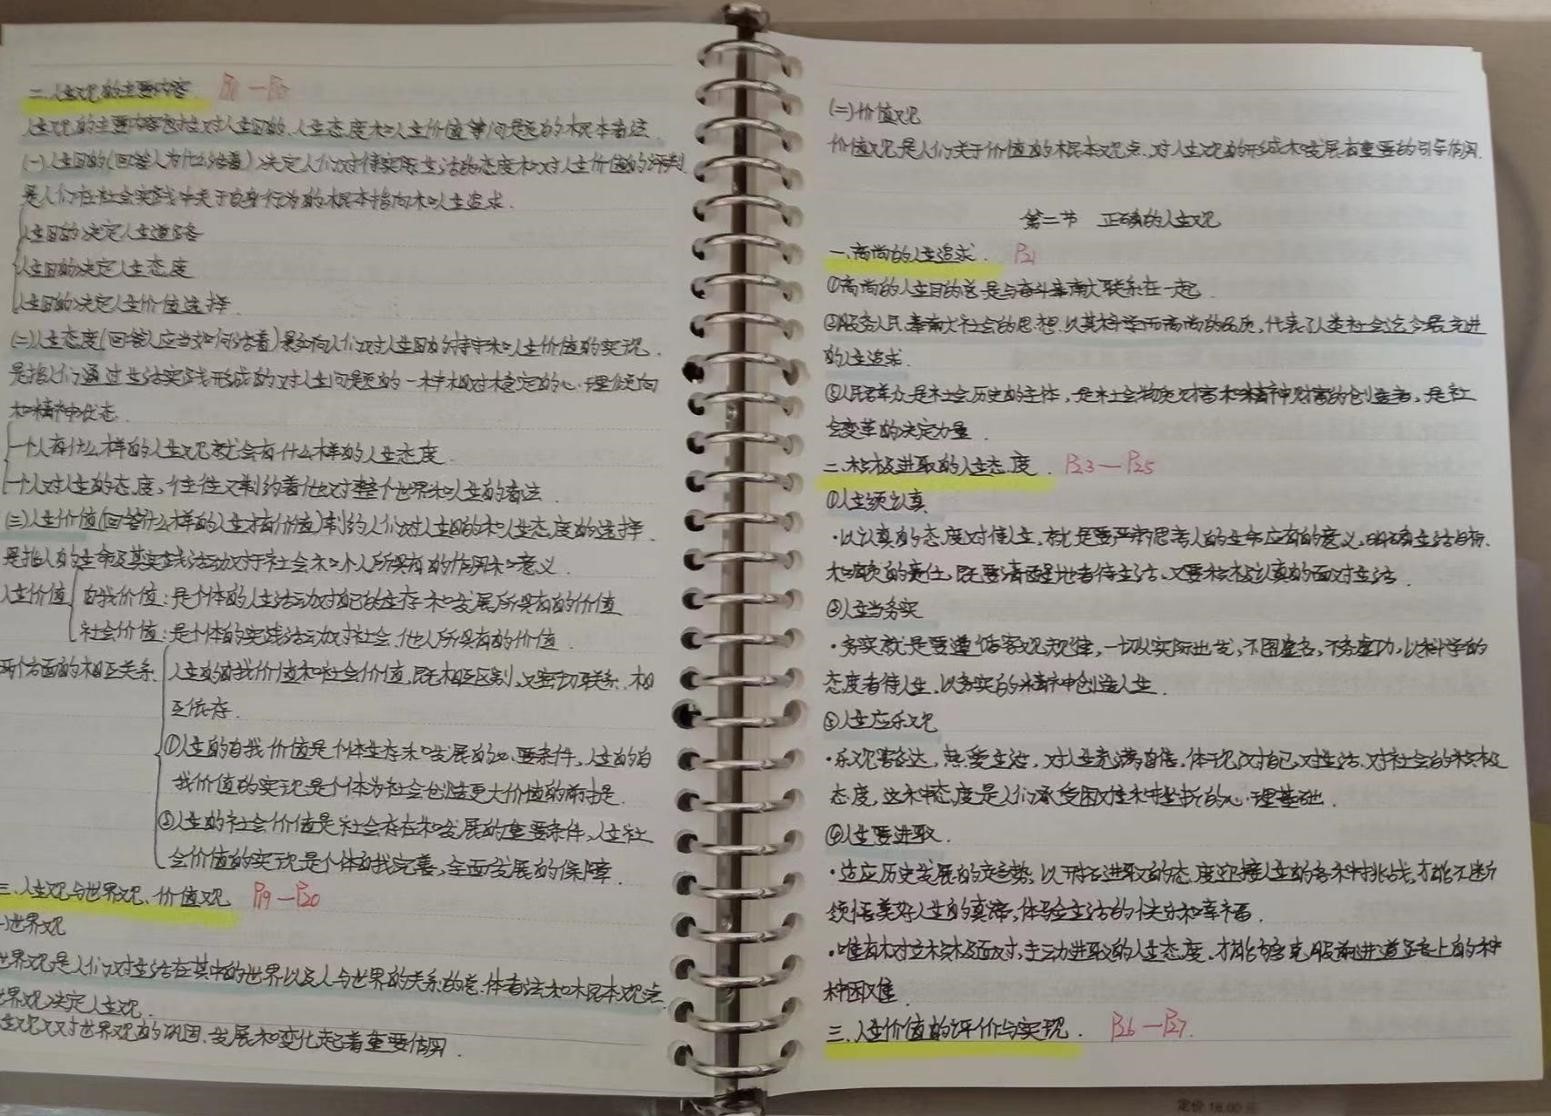 二、人生观的主要内容 P18—P19
人生观的主要内容包括对人生目的、人生态度和人生价值等问题的根本看法.
(一)人生目的(回答人为什么活着)决定人们对待实际生活的态度和对人生价值的评判
是人们在社会实践中关于自身行为的根本指向和人生追求.
人生目的决定人生道路
人生目的决定人生态度
人生目的决定人生价值选择.
(二)人生态度(回答人应当如何活着)影响人们对人生目的的持守和人生价值的实现.
是指人们通过生活实践形成的对人生问题的一种相对稳定的心理倾向
和精神状态.
一个人有什么样的人生观就会有什么样的人生态度.
一个人对人生的态度,往往又制约着他对整个世界和人生的看法.
(三)人生价值(回答什么样的人生有价值)制约人们对人生目的和人生态度的选择.
是指人的生命及其实践活动对于社会和个人所具有的作用和意义.
人生价值 自我价值:是个体的人生活动对自己的生存和发展所具有的价值
社会价值:是个体的实践活动对社会、他人所具有的价值.
两个方面的相互关系. 人生的自我价值和社会价值,既相互区别,又密切联系、相
互依存.
①人生的自我价值是个体生存和发展的必要条件,人生的自
我价值的实现是个体为社会创造更大价值的前提.
②人生的社会价值是社会存在和发展的重要条件,人生社
会价值的实现是个体自我完善、全面发展的保障.
三、人生观与世界观、价值观 P19—P20
世界观
世界观是人们对生活在其中的世界以及人与世界的关系的总体看法和根本观点.
世界观决定人生观.
人生观又对世界观的巩固、发展和变化起着重要作用.
(二)价值观
价值观是人们关于价值的根本观点.对人生观的形成和发展有重要的引导作用.
第二节 正确的人生观
一、高尚的人生追求. P21
①高尚的人生目的总是与奋斗奉献联系在一起.
②服务人民、奉献社会的思想以其科学而高尚的品质,代表了人类社会迄今最先进
的人生追求.
③人民群众是社会历史的主体,是社会物质财富和精神财富的创造者,是社
会变革的决定力量.
二、积极进取的人生态度. P23—P25
①人生须认真
·以认真的态度对待人生,就是要严肃思考人的生命应有的意义,明确生活目标.
和肩负的责任,既要清醒地看待生活、又要积极认真的面对生活.
②人生当务实
·务实就是要遵循客观规律,一切从实际出发,不图虚名,不务虚功,以科学的
态度看待人生、以务实的精神创造人生.
③人生应乐观
·乐观豁达,热爱生活,对人生充满自信,体现对自己、对生活、对社会的积极
态度,这种态度是人们承受困难和挫折的心理基础.
④人生要进取.
·适应历史发展的趋势,以开拓进取的态度迎接人生的各种挑战,才能不断
领悟美好人生的真谛,体验生活的快乐和幸福.
·唯有树立积极面对,主动进取的人生态度,才能够克服前进道路上的种
种困难.
三、人生价值的评价与实现. P26—P27.
定价 18.00元